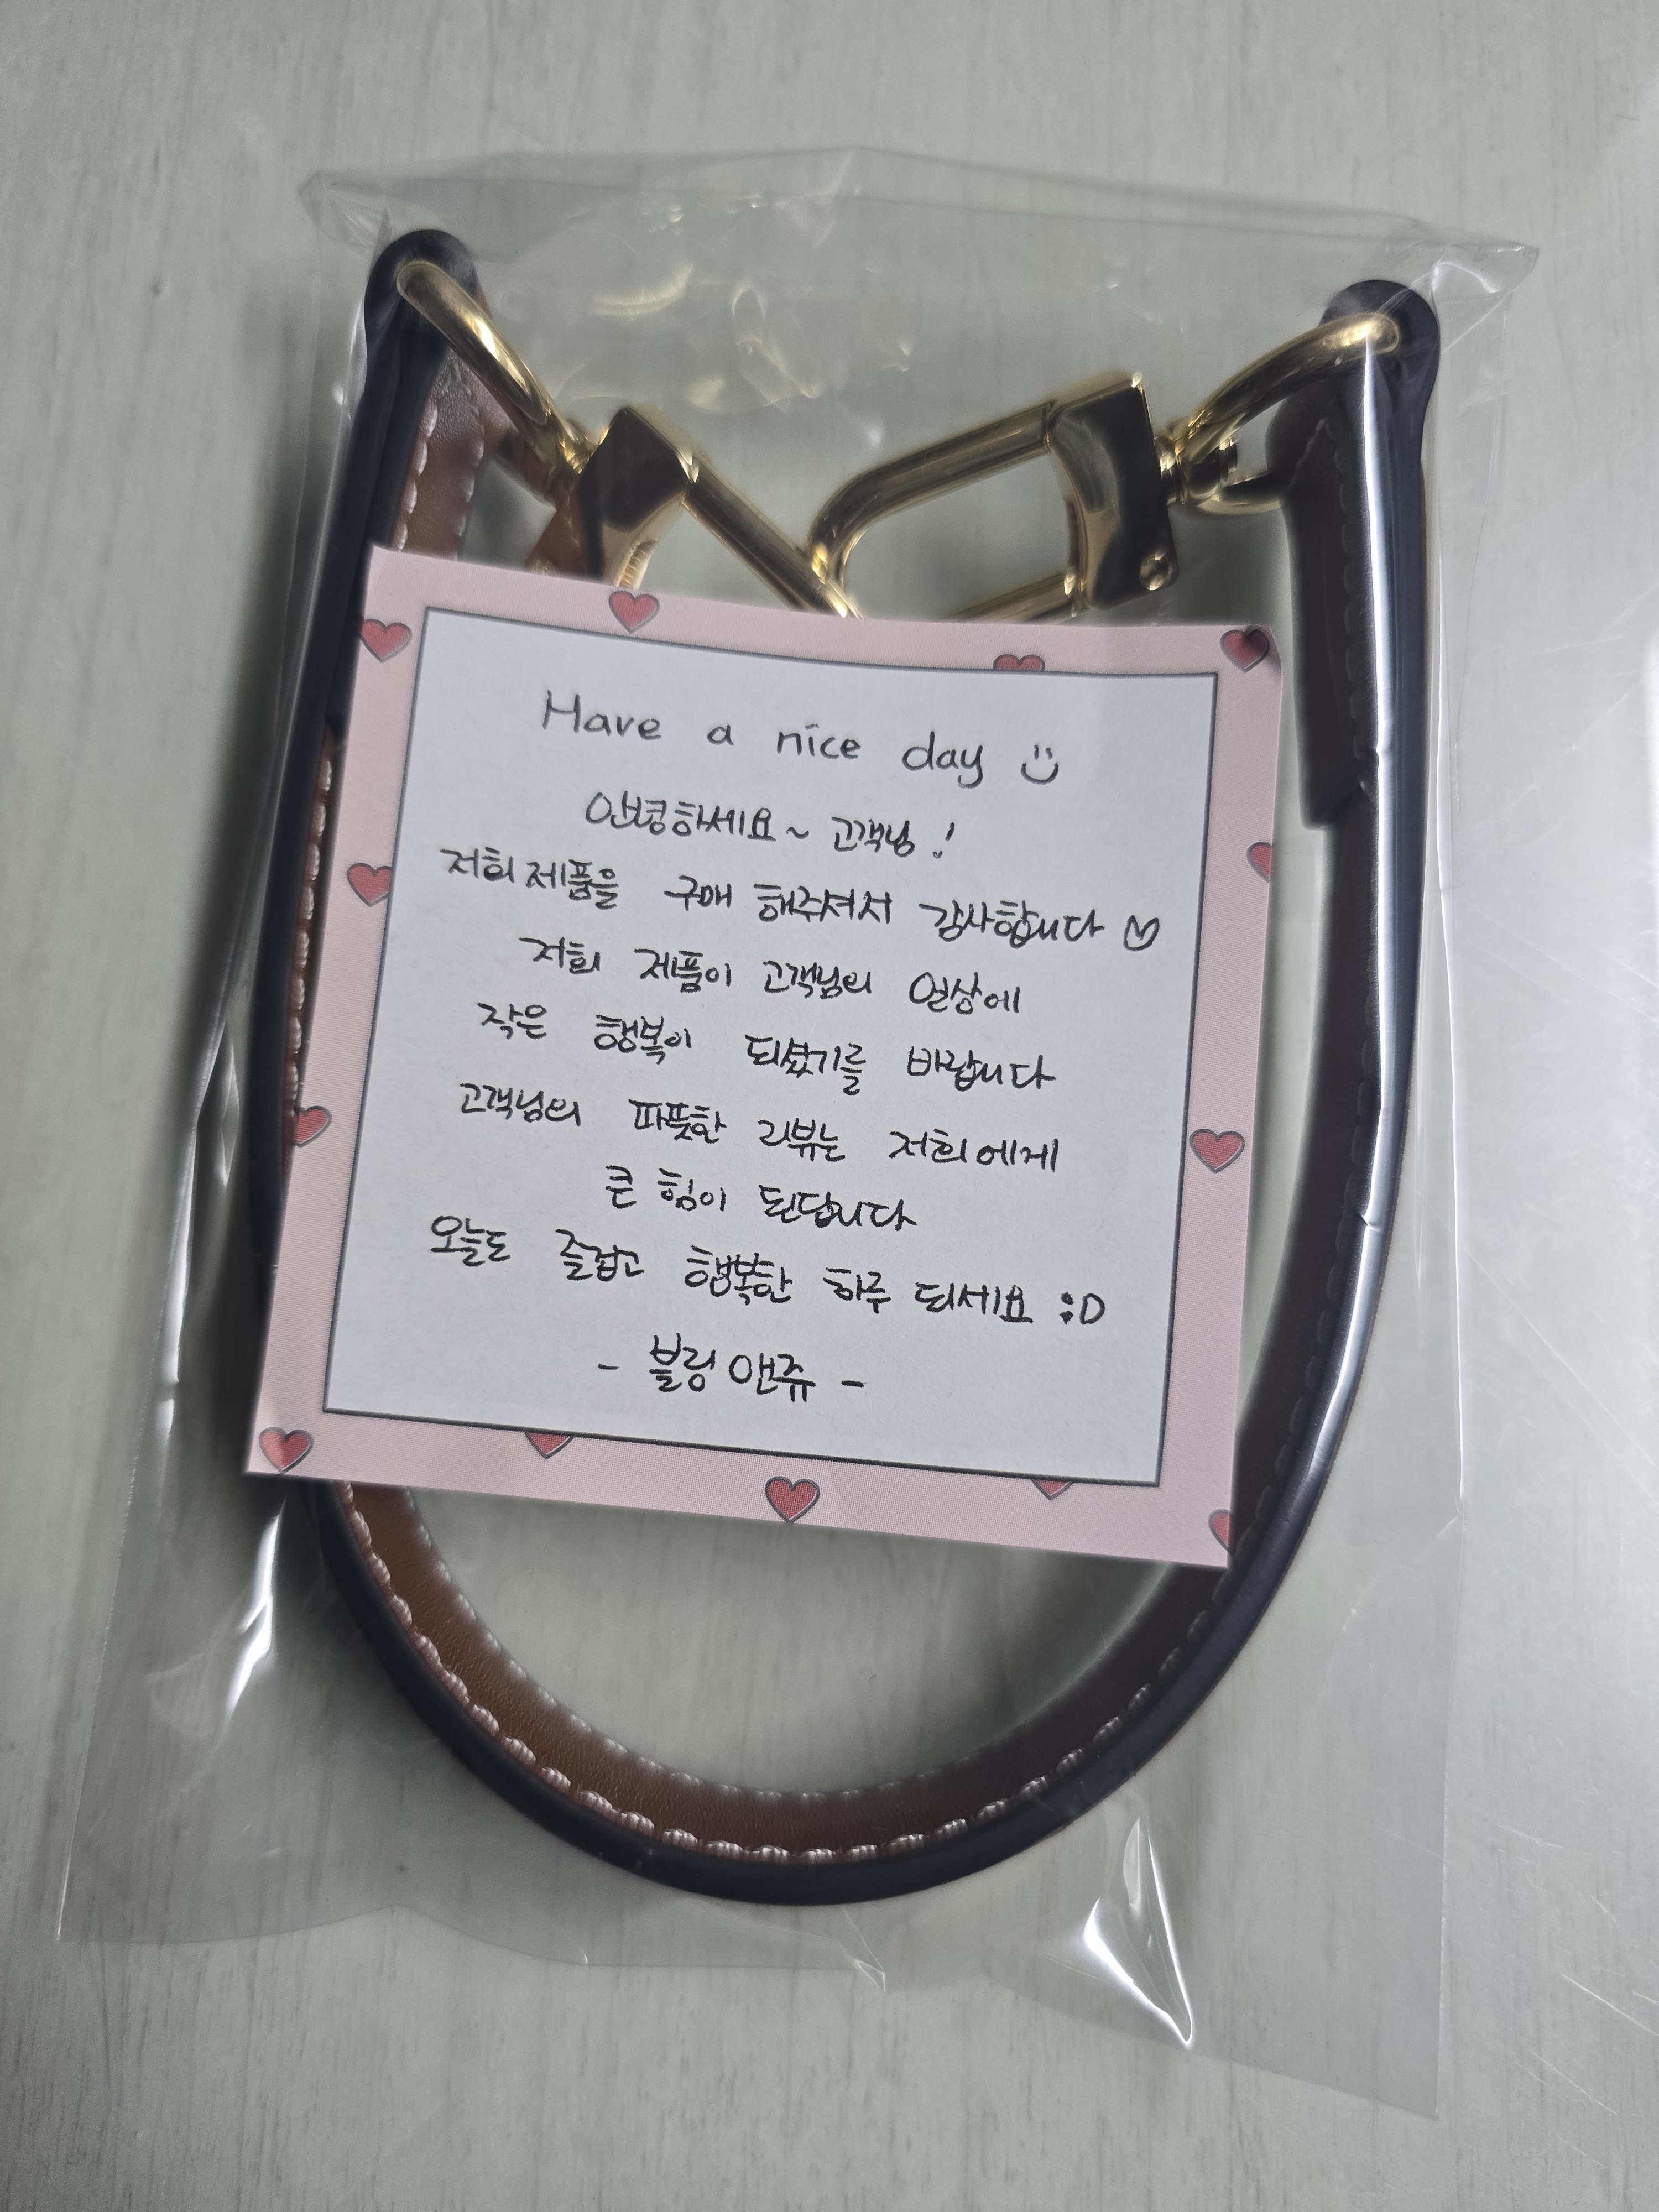 Have a nice day
안녕하세요~ 고객님!
저희 제품을 구매 해주셔서 감사합니다 ♡
저희 제품이 고객님의 일상에
작은 행복이 되셨기를 바랍니다
고객님의 따뜻한 리뷰는 저희에게
큰 힘이 된답니다
오늘도 즐겁고 행복한 하루 되세요 :D
- 블링앤쥬 -